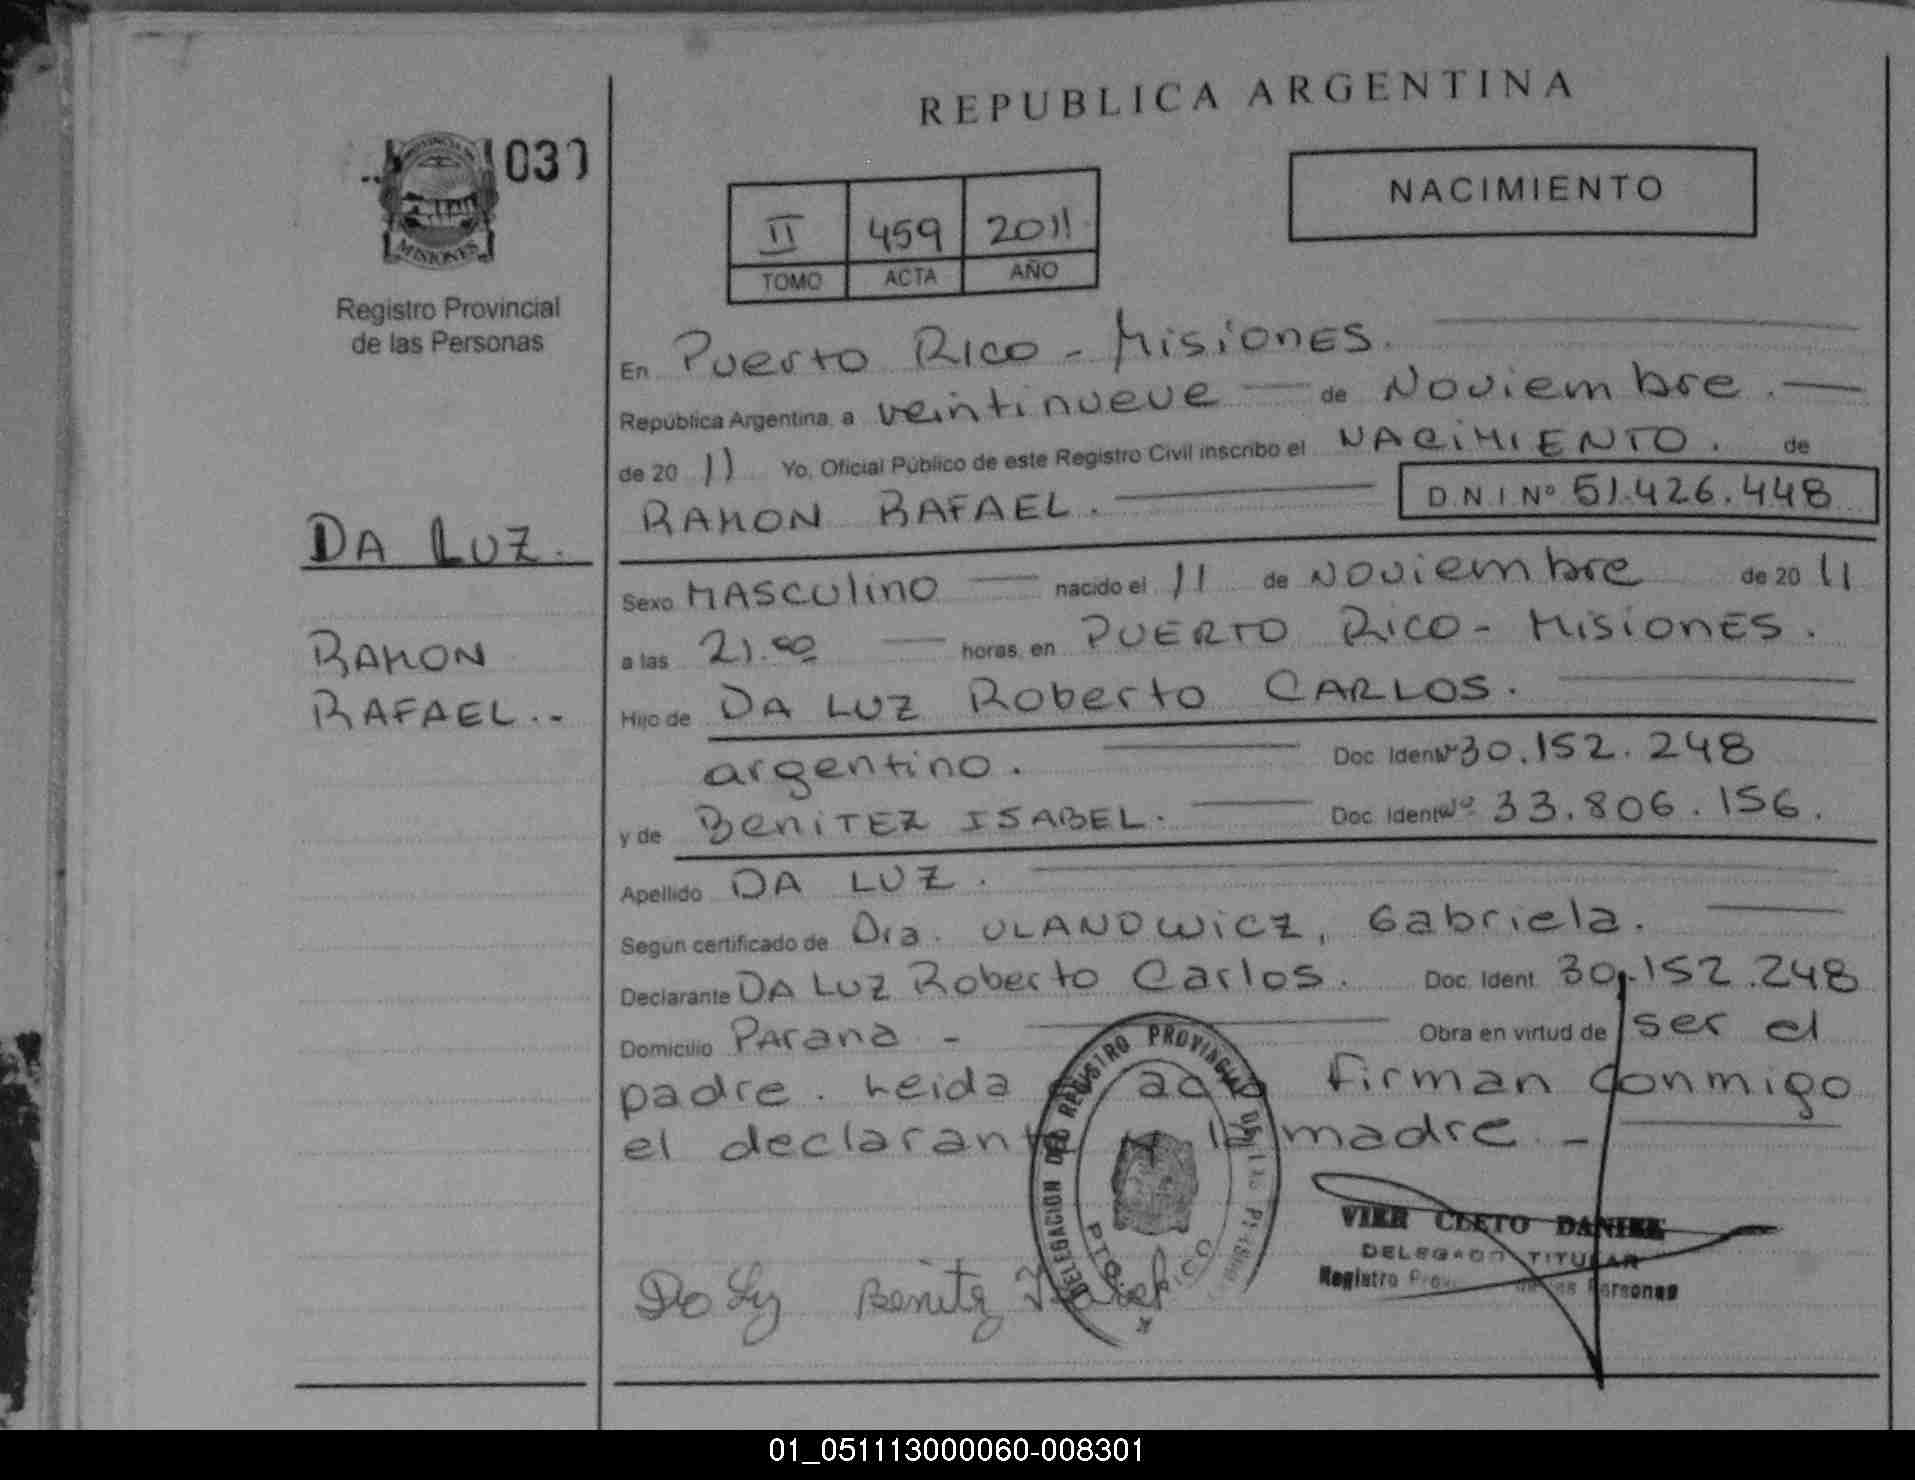 REPUBLICA ARGENTINA
PROVINCIA DE
MISIONES
030
Registro Provincial
de las Personas
NACIMIENTO
II 459 2011
TOMO ACTA AÑO
En Puerto Rico - Misiones.
República Argentina, a veintinueve de Noviembre.
de 20 11 Yo, Oficial Público de este Registro Civil inscribo el NACIMIENTO. de
RAMON RAFAEL. D.N.I Nº 51.426.448
DA LUZ.
RAMON
RAFAEL.-
Sexo MASCULINO nacido el 11 de Noviembre de 20 11
a las 21.00 horas, en PUERTO RICO - Misiones.
Hijo de DA LUZ Roberto CARLOS.
argentino. Doc. Ident Nº 30.152.248
y de BENITEZ ISABEL. Doc. Ident Nº 33.806.156.
Apellido DA LUZ.
Según certificado de Dra. ULANOWICZ, Gabriela.
Declarante DA LUZ Roberto Carlos. Doc. Ident. 30.152.248
Domicilio Parana - Obra en virtud de ser el
padre. Leida acta firman conmigo
el declarante y la madre. -
DELEGACION DEL REGISTRO PROVINCIAL DE LAS
PTO. RICO
VIER CLETO DANIEL
DELEGADO TITULAR
Registro Prov. de las Personas
Da Luz Benitez Isabel
01_051113000060-008301